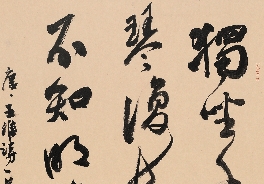 獨坐
琴復
不知明
唐王維詩一